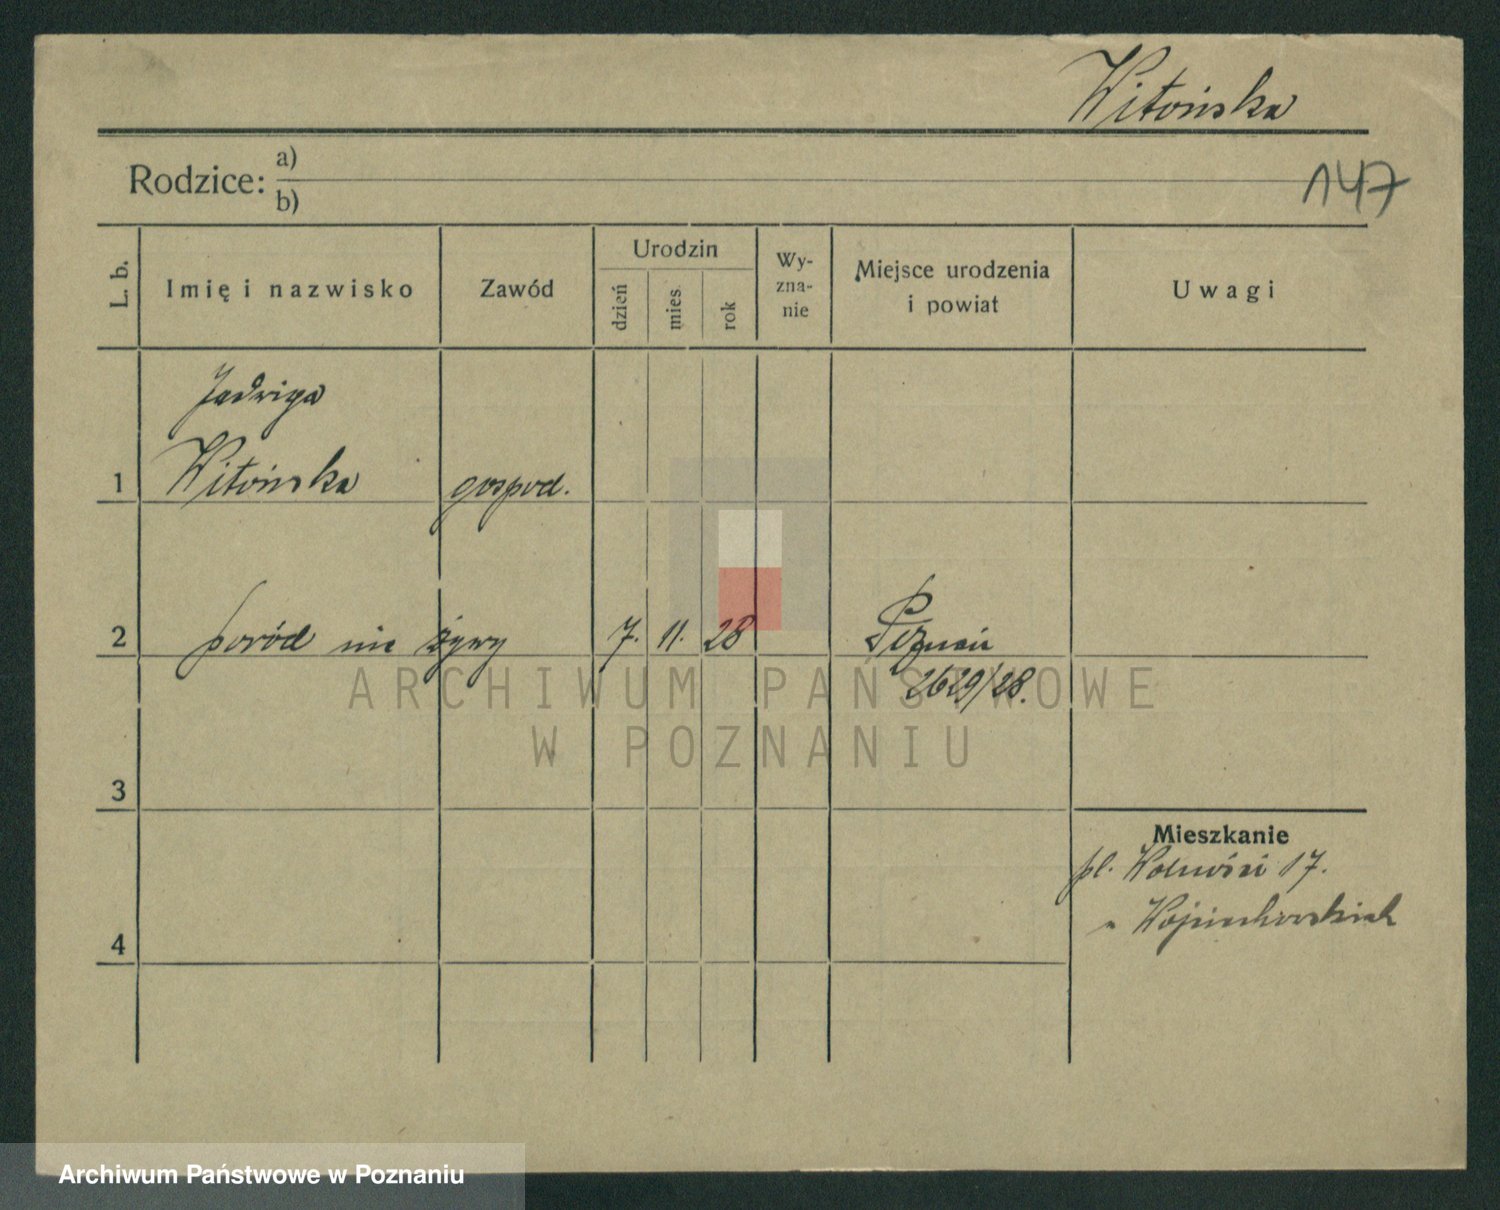 Witońska
Rodzice: a)
b)
147
L. b.
Imię i nazwisko
Zawód
Urodzin
dzień
mies.
rok
Wy-
zna-
nie
Miejsce urodzenia
i powiat
Uwagi
Jadwiga
1 Witońska gospod.
2 poród nie żywy 7. 11. 28 Poznań
2629/28.
ARCHIWUM PAŃSTWOWE
W POZNANIU
3
Mieszkanie
pl. Wolności 17.
4
Archiwum Państwowe w Poznaniu